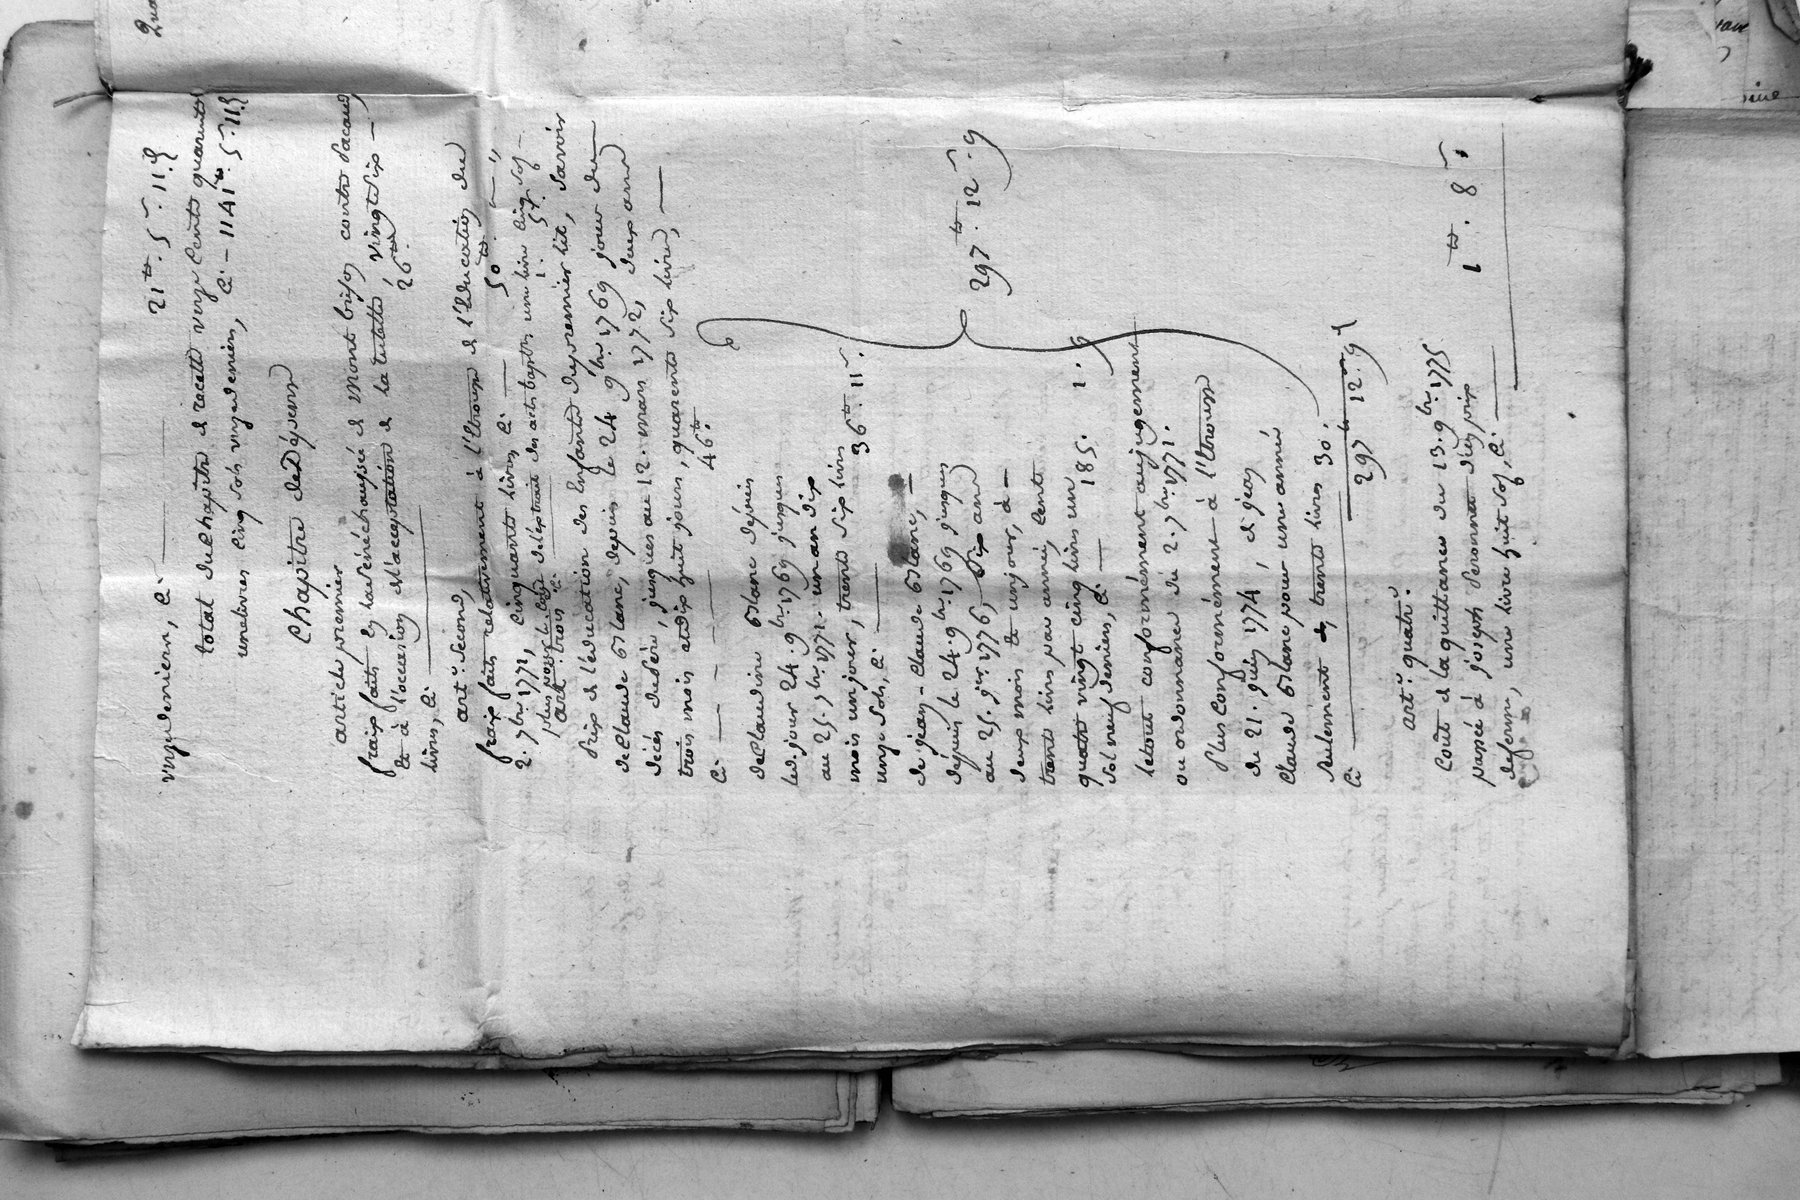 onze deniers, Ci ——— 21ᵗᵗ. 5ˢ. 11ᵈ
total du Chapitre de recette onze Cents quarante
une livres Cinq sols onze deniers, Ci – 1141ᵗᵗ 5ˢ 11ᵈ
Chapitre de Dépense
article premier
fraix faits en la sénéchaussée de Mont brison contre
& à l'occasion de l'acceptation de la tutelle, vingt six —
livres, Ci ——— 26ᵗᵗ
artᵉ. Second,
fraix faits relativement à l'Etrousse de l'Education du
2. 7bre. 1771, Cinquante livres Ci — 50ᵗᵗ. "—",
plus pour de l'extrait des acts baptres une livre Cinq sols — 1. 5ˢ.
art. trois Ci
Prix de l'éducation des Enfants du premier lit, Savoir
de Claude Blanc, depuis le 24 9bre. 1769 jour du —
décès du père, jusques au 12. mars 1772, deux ans
trois mois et dix huit jours, quarente Six livres, —
Ci — — — — 46ᵗᵗ.
de Claudine Blanc dépuis
led. jour 24. 9bre. 1769 jusques
au 25. 7bre. 1771. un an dix
mois un jour, trente Six livres
onze Sols, Ci ——— 36ᵗᵗ. 11ˢ.
de jean-Claude Blanc, —
dépuis le 24. 9bre. 1769 jusques
au 25. jer. 1776, Six ans
deux mois & un jour, à —
trente livres par année, Cent
quatre vingt cinq livres un
sol neuf deniers, Ci — 185. 1. 9
297ᵗᵗ. 12ˢ. 9
le tout conformément au jugement
ou ordonnance du 2. 7bre. 1771.
Plus Conformément à l'Etrousse
du 21. juin 1774, de jean
Claude Blanc pour une année
seulement &, trente livres 30.
Ci ——— 297ᵗᵗ 12ˢ. 9ᵈ
artᵉ. quatre.
Coût de la quittance du 13. 9bre. 1775
passée à joseph Peronnet dieu prix
deferrer, une livre huit Sols, Ci. — 1ᵗᵗ. 8ˢ.